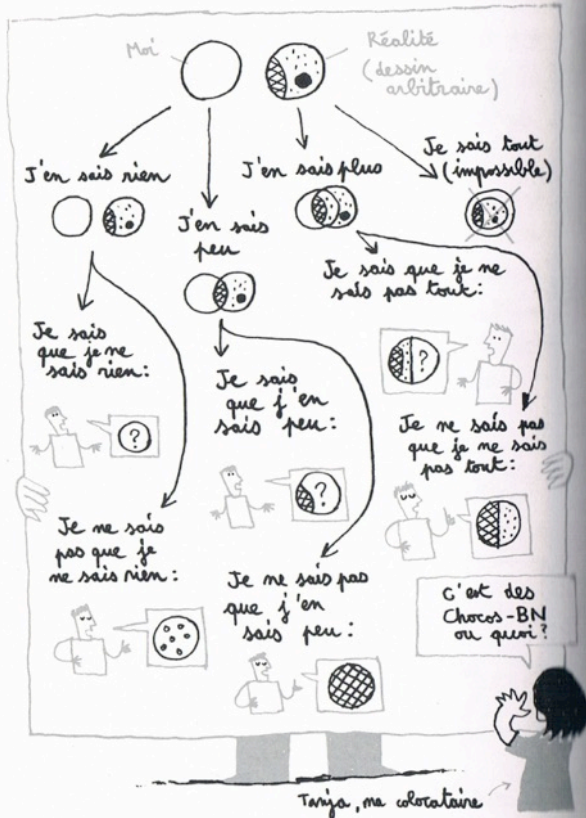 Moi
Réalité
(dessin
arbitraire)
J'en sais rien
J'en sais
peu
J'en sais plus
Je sais tout
(impossible)
Je sais
que je ne
sais rien:
?
Je ne sais
pas que je
ne sais rien:
Je sais
que j'en
sais peu:
?
Je ne sais pas
que j'en
sais peu:
Je sais que je ne
sais pas tout:
?
Je ne sais pas
que je ne sais
pas tout:
C'est des
Chocos-BN
ou quoi?
Tanja, ma colocataire